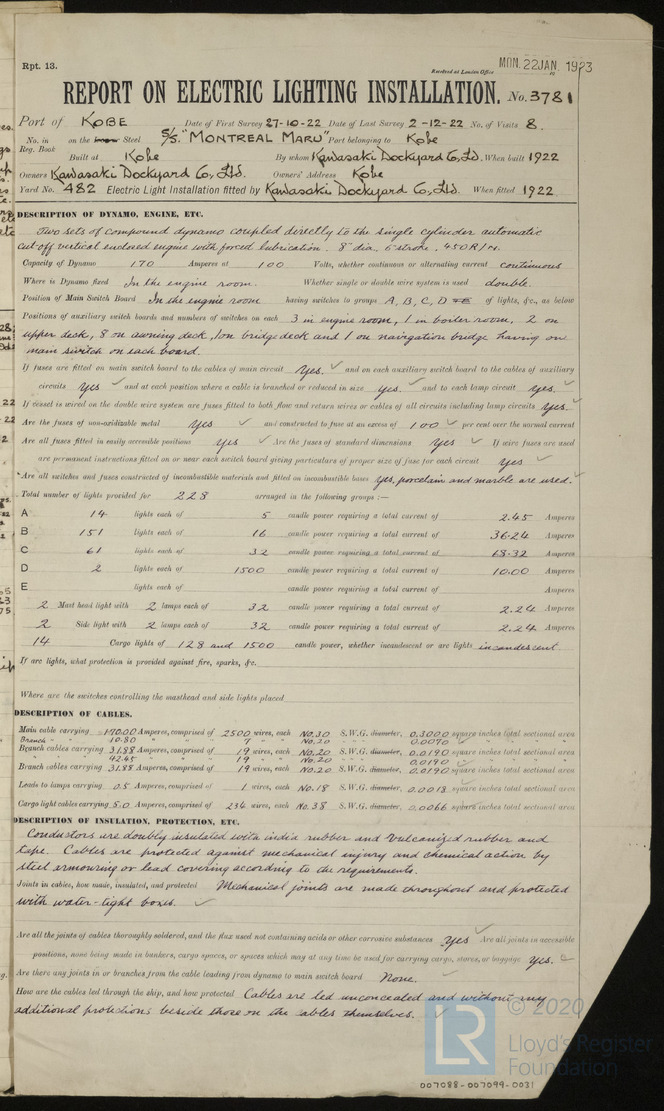 Rpt. 13.
Received at London Office MON. 22 JAN. 1923
REPORT ON ELECTRIC LIGHTING INSTALLATION. No. 3781
Port of KOBE Date of First Survey 27-10-22 Date of Last Survey 2-12-22 No. of Visits 8.
No. in Reg. Book on the Iron Steel S/S. "MONTREAL MARU" Port belonging to Kobe
Built at Kobe By whom Kawasaki Dockyard Co, Ltd. When built 1922
Owners Kawasaki Dockyard Co, Ltd. Owners' Address Kobe
Yard No. 482 Electric Light Installation fitted by Kawasaki Dockyard Co, Ltd. When fitted 1922
DESCRIPTION OF DYNAMO, ENGINE, ETC.
Two sets of compound dynamo coupled directly to the single cylinder automatic
cut-off vertical enclosed engine with forced lubrication. 8" dia. 6" stroke. 450 R/M.
Capacity of Dynamo 170 Amperes at 100 Volts, whether continuous or alternating current continuous
Where is Dynamo fixed In the engine room. Whether single or double wire system is used double.
Position of Main Switch Board In the engine room having switches to groups A, B, C, D of lights, &c., as below
Positions of auxiliary switch boards and numbers of switches on each 3 in engine room, 1 in boiler room, 2 on
upper deck, 8 on awning deck, 1 on bridge deck and 1 on navigation bridge having one
main switch on each board.
If fuses are fitted on main switch board to the cables of main circuit Yes. and on each auxiliary switch board to the cables of auxiliary
circuits Yes and at each position where a cable is branched or reduced in size yes. and to each lamp circuit yes.
If vessel is wired on the double wire system are fuses fitted to both flow and return wires or cables of all circuits including lamp circuits Yes.
Are the fuses of non-oxidizable metal Yes and constructed to fuse at an excess of 100 per cent over the normal current
Are all fuses fitted in easily accessible positions Yes Are the fuses of standard dimensions Yes If wire fuses are used
are permanent instructions fitted on or near each switch board giving particulars of proper size of fuse for each circuit Yes
Are all switches and fuses constructed of incombustible materials and fitted on incombustible bases Yes, porcelain and marble are used.
Total number of lights provided for 228 arranged in the following groups :—
A 14 lights each of 5 candle power requiring a total current of 2.45 Amperes
B 151 lights each of 16 candle power requiring a total current of 36.24 Amperes
C 61 lights each of 32 candle power requiring a total current of 18.32 Amperes
D 2 lights each of 1500 candle power requiring a total current of 10.00 Amperes
E lights each of candle power requiring a total current of Amperes
2 Mast head light with 2 lamps each of 32 candle power requiring a total current of 2.24 Amperes
2 Side light with 2 lamps each of 32 candle power requiring a total current of 2.24 Amperes
14 Cargo lights of 128 and 1500 candle power, whether incandescent or arc lights incandescent.
If arc lights, what protection is provided against fire, sparks, &c.
Where are the switches controlling the masthead and side lights placed
DESCRIPTION OF CABLES.
Main cable carrying 170.00 Amperes, comprised of 2500 wires, each No.30 S.W.G. diameter, 0.3000 square inches total sectional area
Branch " " 10.80 7 " No.20 0.0070
Branch cables carrying 31.88 Amperes, comprised of 19 wires, each No.20 S.W.G. diameter, 0.0190 square inches total sectional area
" " 42.45 " 19 " No.20 0.0190
Branch cables carrying 31.88 Amperes, comprised of 19 wires, each No.20 S.W.G. diameter, 0.0190 square inches total sectional area
Leads to lamps carrying 0.5 Amperes, comprised of 1 wires, each No.18 S.W.G. diameter, 0.0018 square inches total sectional area
Cargo light cables carrying 5.0 Amperes, comprised of 234 wires, each No.38 S.W.G. diameter, 0.0066 square inches total sectional area
DESCRIPTION OF INSULATION, PROTECTION, ETC.
Conductors are doubly insulated with india rubber and vulcanized rubber and
tape. Cables are protected against mechanical injury and chemical action by
steel armouring or lead covering according to the requirements.
Joints in cables, how made, insulated, and protected Mechanical joints are made throughout and protected
with water-tight boxes.
Are all the joints of cables thoroughly soldered, and the flux used not containing acids or other corrosive substances Yes Are all joints in accessible
positions, none being made in bunkers, cargo spaces, or spaces which may at any time be used for carrying cargo, stores, or baggage Yes.
Are there any joints in or branches from the cable leading from dynamo to main switch board None.
How are the cables led through the ship, and how protected Cables are led unconcealed and without any
additional protections beside those on the cables themselves.
© 2020
LR Lloyd's Register
Foundation
007088-007099-0031